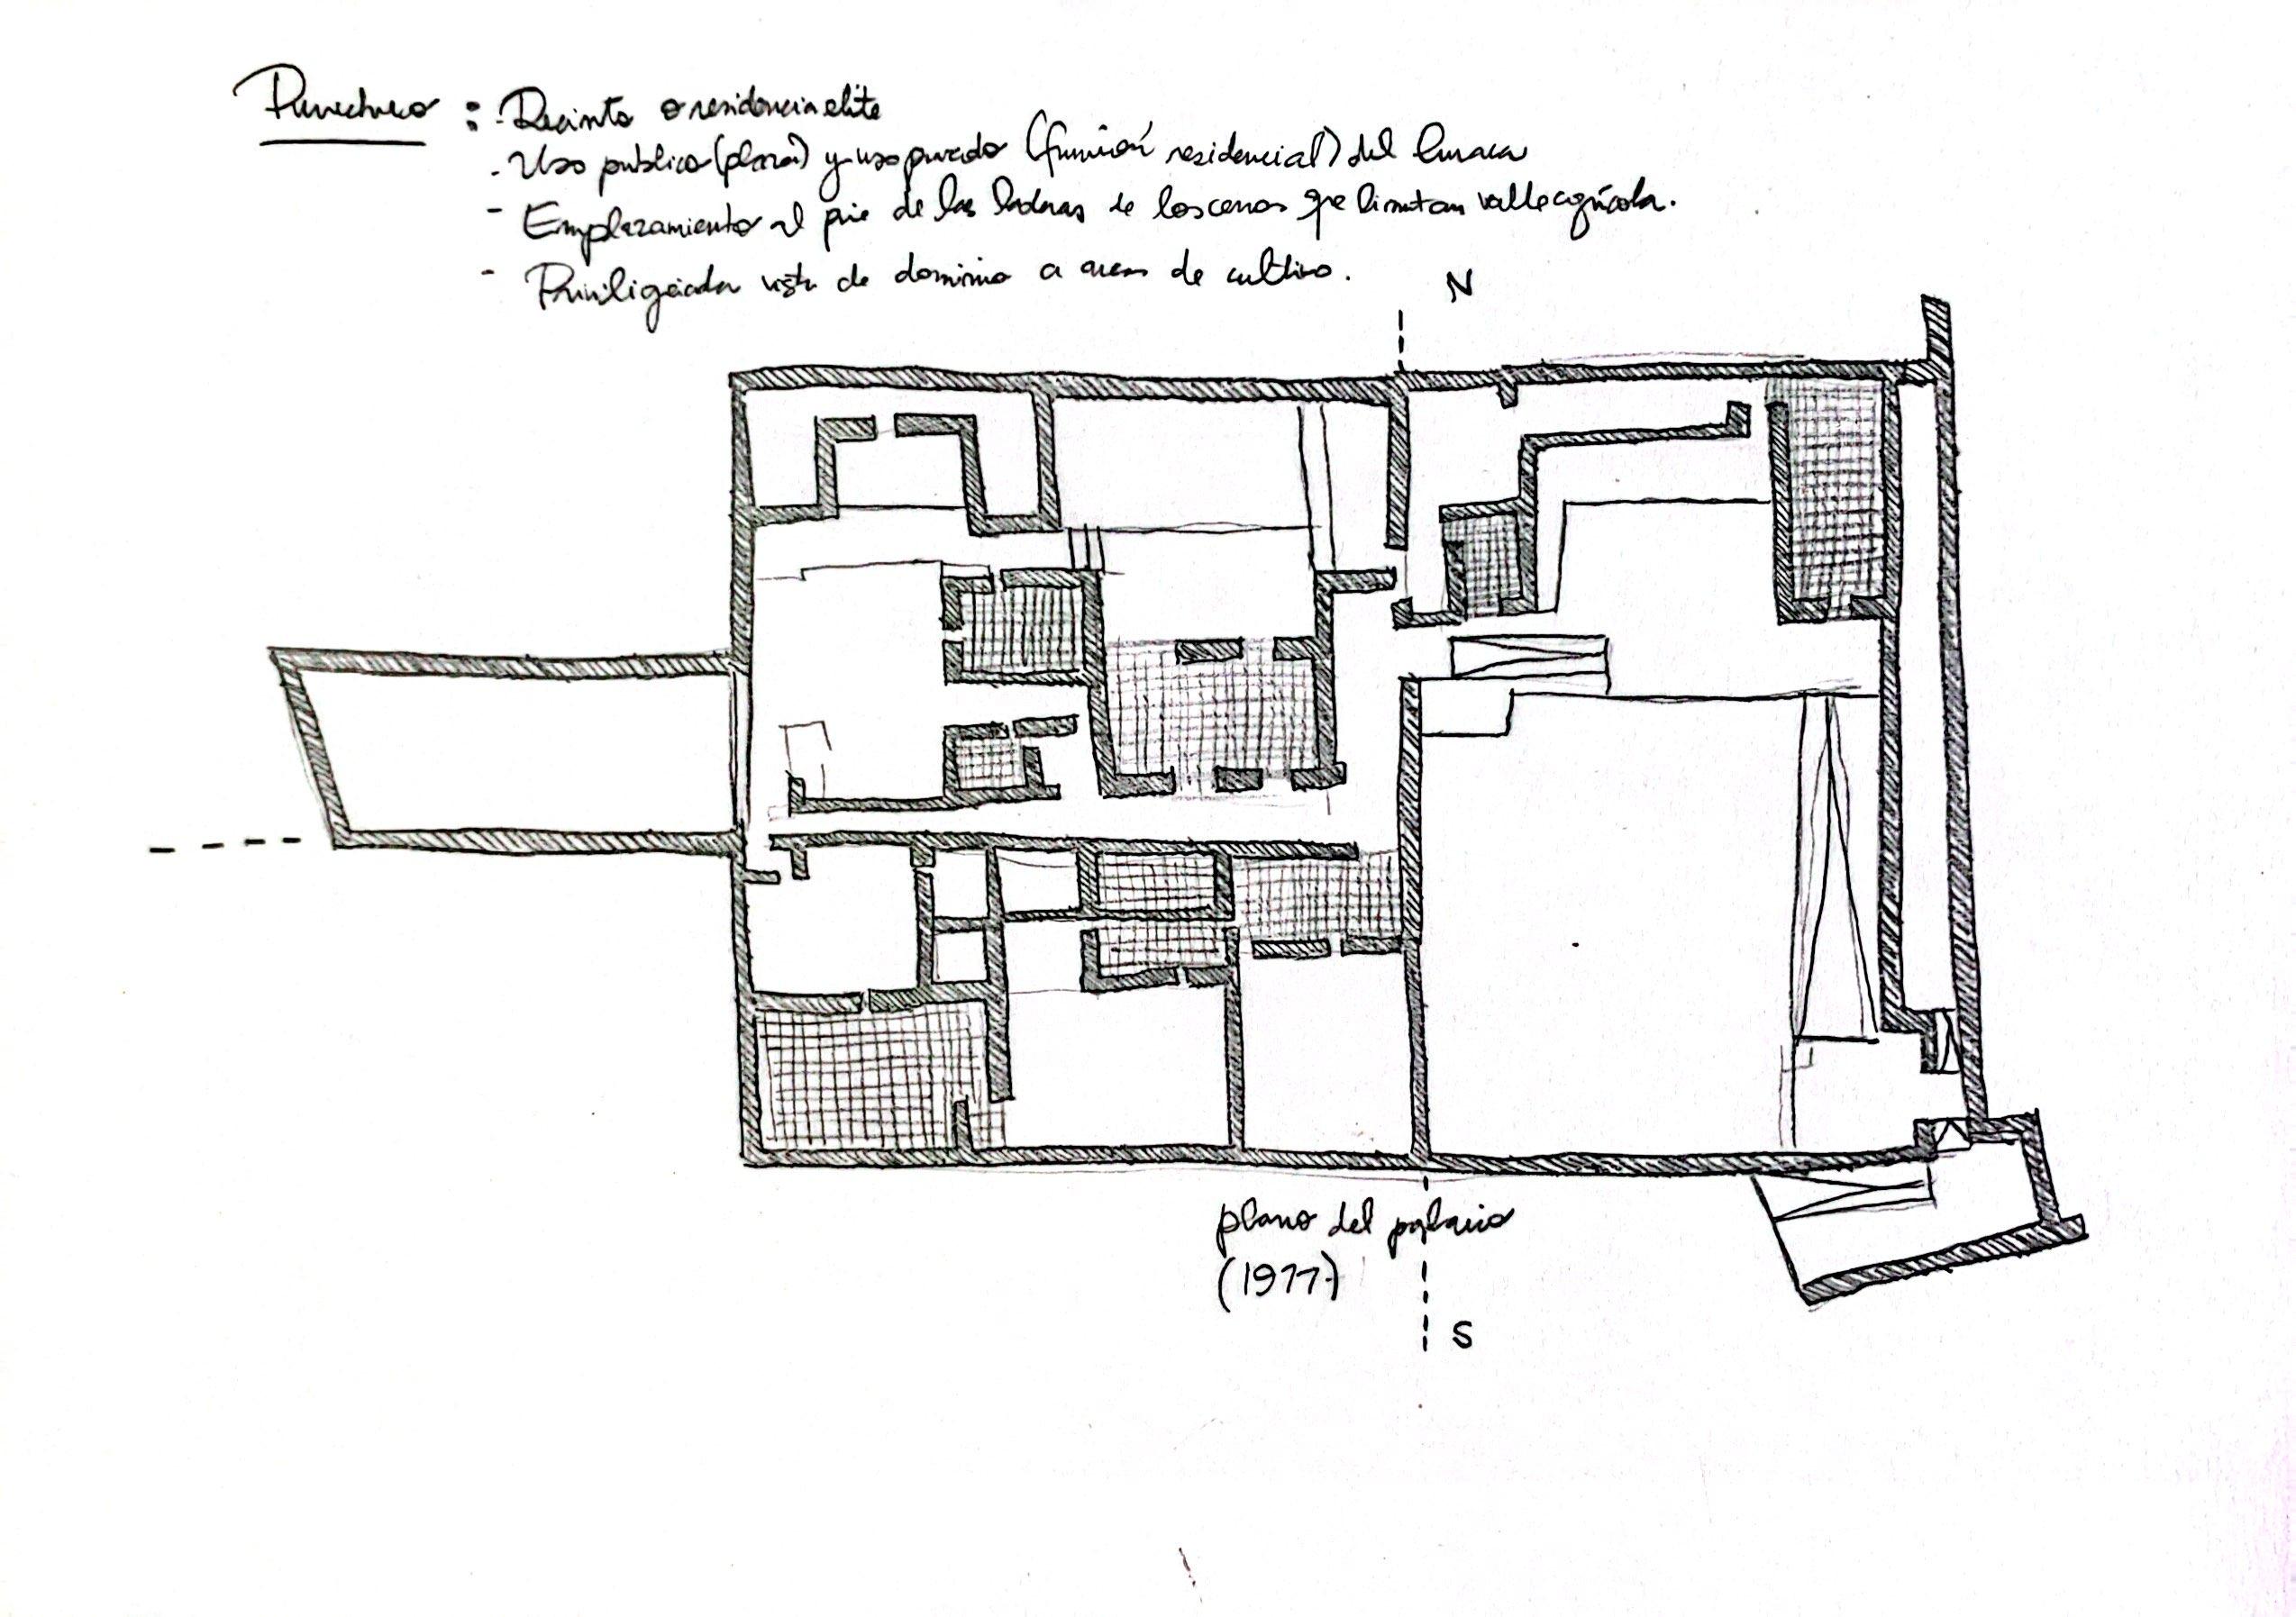 Puruchuco : - Recinto o residencia elite
- Uso publico (plaza) y uso privado (función residencial) del Curaca
- Emplazamiento al pie de las laderas de los cerros que limitan valle agrícola.
- Priviligeiada vista de dominio a areas de cultivo.
N
plano del palacio
(1977)
S